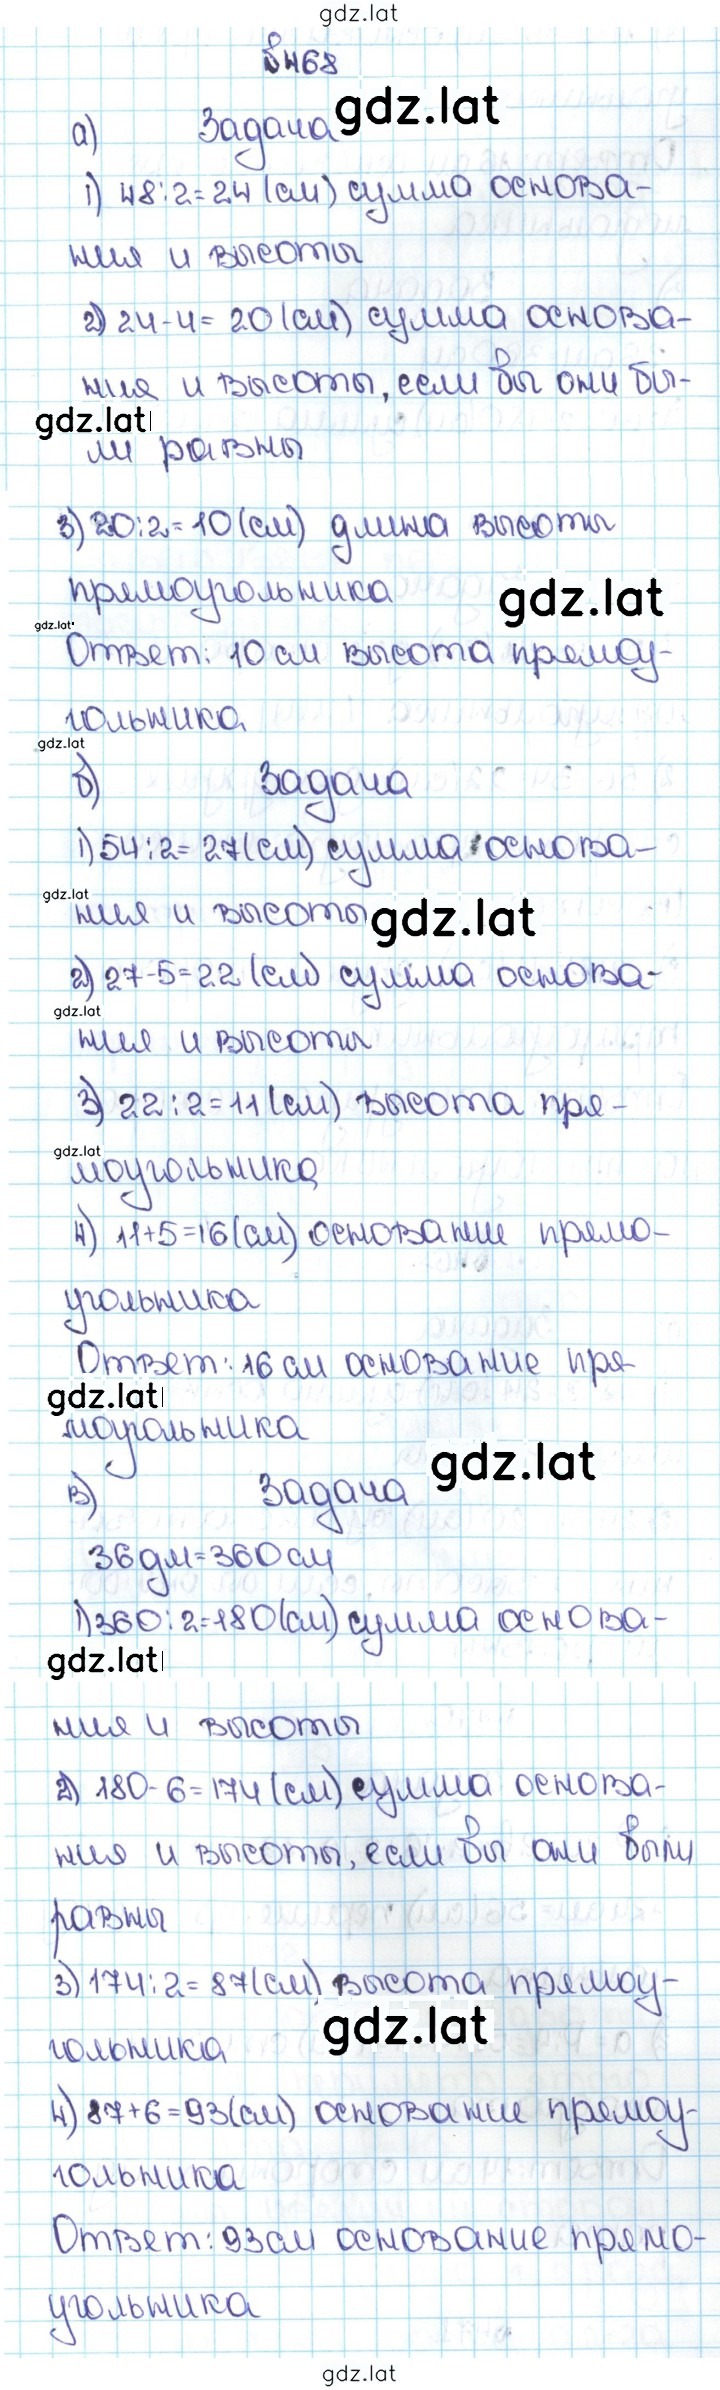 gdz.lat
№468
а) Задача gdz.lat
1) 48:2=24 (см) сумма основа-
ния и высоты
2) 24-4= 20 (см) сумма основа-
ния и высоты, если вы они бы-
gdz.lat
ли равны
3) 20:2=10 (см) длина высоты
прямоугольника gdz.lat
gdz.lat
Ответ: 10 см высота прямоу-
гольника
gdz.lat
б) Задача
1) 54:2=27(см) сумма основа-
gdz.lat
ния и высоты gdz.lat
2) 27-5=22 (см) сумма основа-
gdz.lat
ния и высоты
3) 22:2=11(см) высота пря-
gdz.lat
моугольника
4) 11+5=16(см) основание прямо-
угольника
Ответ: 16 см основание пря
gdz.lat
моугольника
gdz.lat
в) Задача
36дм=360см
1) 360:2=180(см) сумма основа-
gdz.lat
ния и высоты
2) 180-6=174 (см) сумма основа-
ния и высоты, если вы они были
равны
3) 174:2=87(см) высота прямоу-
гольника gdz.lat
4) 87+6=93(см) основание прямоу-
гольника
Ответ: 93см основание прямо-
угольника
gdz.lat